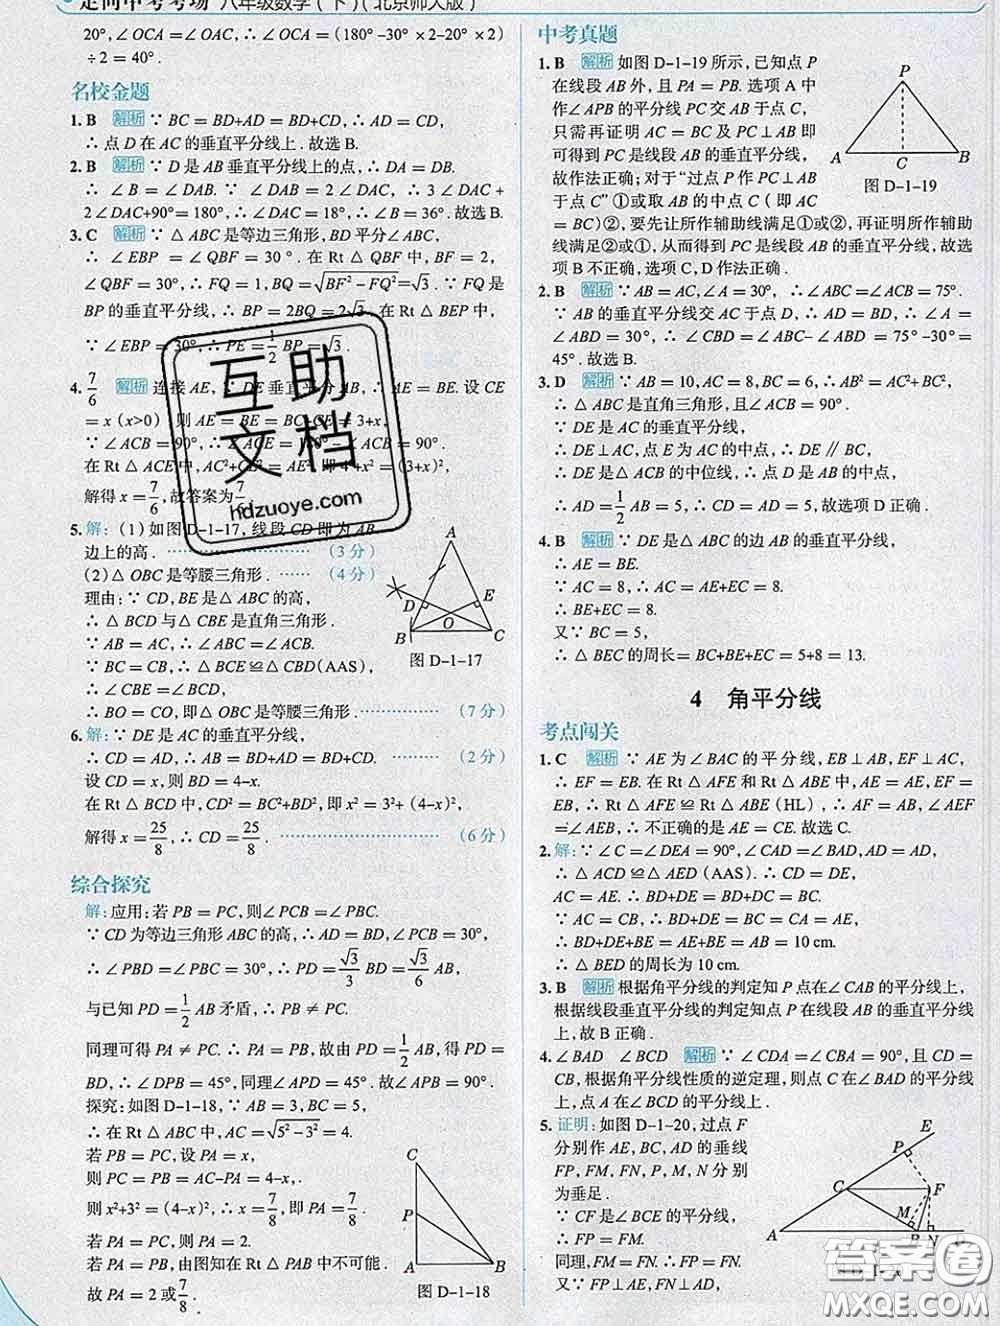 走向中考考场 八年级数学(下)(北京师大版)
20°,∠OCA=∠OAC,∴∠OCA=(180°-30°×2-20°×2)
÷2=40°.
名校金题
1. B 解析 ∵BC=BD+AD=BD+CD,∴AD=CD,
∴点D在AC的垂直平分线上.故选B.
2. B 解析 ∵D是AB垂直平分线上的点,∴DA=DB.
∴∠B=∠DAB.∵∠DAB=2∠DAC,∴3∠DAC+
2∠DAC+90°=180°,∴∠DAC=18°,∴∠B=36°.故选B.
3. C 解析 ∵△ABC是等边三角形,BD平分∠ABC,
∴∠EBP=∠QBF=30°.在Rt△QBF中,BF=2,
∠QBF=30°,∴FQ=1,BQ=√(BF²-FQ²)=√3.∵FQ是
BP的垂直平分线,∴BP=2BQ=2√3.在Rt△BEP中,
∵∠EBP=30°,∴PE=1/2 BP=√3.
4. 7/6 解析 连接AE,∵DE垂直平分AB,∴AE=BE.设CE
=x(x>0),则AE=BE=BC+CE=3+x,
∵∠ACB=90°,∴∠ACE=180°-∠ACB=90°.
在Rt△ACE中,AC²+CE²=AE²,即4²+x²=(3+x)²,
解得x=7/6,故答案为7/6.
5. 解:(1)如图D-1-17,线段CD即为AB
边上的高. (3分)
(2)△OBC是等腰三角形. (4分)
理由:∵CD,BE是△ABC的高,
∴△BCD与△CBE是直角三角形.
∵AB=AC,∴∠ABC=∠ACB.
∵BC=CB,∴△BCE≌△CBD(AAS),
∴∠CBE=∠BCD,
∴BO=CO,即△OBC是等腰三角形. (7分)
A
D
E
O
B
C
图D-1-17
6. 解:∵DE是AC的垂直平分线,
∴CD=AD,∴AB=BD+AD=BD+CD. (2分)
设CD=x,则BD=4-x.
在Rt△BCD中,CD²=BC²+BD²,即x²=3²+(4-x)²,
解得x=25/8,∴CD=25/8. (6分)
综合探究
解:应用:若PB=PC,则∠PCB=∠PBC.
∵CD为等边三角形ABC的高,∴AD=BD,∠PCB=30°,
∴∠PBD=∠PBC=30°,∴PD=√3/3 BD=√3/6 AB,
与已知PD=1/2 AB矛盾,∴PB≠PC.
同理可得PA≠PC.∴PA=PB,故由PD=1/2 AB,得PD=
BD,∴∠DPB=45°,同理∠APD=45°.故∠APB=90°.
探究:如图D-1-18,∵AB=3,BC=5,
∴在Rt△ABC中,AC=√(5²-3²)=4.
若PB=PC,设PA=x,
则PC=PB=AC-PA=4-x,.
则x²+3²=(4-x)²,∴x=7/8,即PA=7/8.
若PA=PC,则PA=2.
若PA=PB,由图知在Rt△PAB中不可能.
故PA=2或7/8.
C
P
A
B
图D-1-18
中考真题
1. B 解析 如图D-1-19所示,已知点P
在线段AB外,且PA=PB.选项A中
作∠APB的平分线PC交AB于点C,
只需再证明AC=BC及PC⊥AB即
可得到PC是线段AB的垂直平分线,
故作法正确;对于“过点P作PC⊥AB
于点C”①或取AB的中点C(即AC
=BC)②,要先让所作辅助线满足①或②,再证明所作辅助
线满足②或①,从而得到PC是线段AB的垂直平分线,故选
项B不正确,选项C,D作法正确.
P
A
C
B
图D-1-19
2. B 解析 ∵AB=AC,∠A=30°,∴∠ABC=∠ACB=75°.
∵AB的垂直平分线交AC于点D,∴AD=BD,∴∠A=
∠ABD=30°,∴∠CBD=∠ABC-∠ABD=75°-30°=
45°.故选B.
3. D 解析 ∵AB=10,AC=8,BC=6,∴AB²=AC²+BC²,
∴△ABC是直角三角形,且∠ACB=90°.
∵DE是AC的垂直平分线,
∴DE⊥AC,点E为AC的中点,∴DE∥BC,
∴DE是△ACB的中位线,∴点D是AB的中点,
∴AD=1/2 AB=5,∴CD=AD=5,故选项D正确.
4. B 解析 ∵DE是△ABC的边AB的垂直平分线,
∴AE=BE.
∵AC=8,∴AC=AE+EC=8.
∴BE+EC=8.
又∵BC=5,
∴△BEC的周长=BC+BE+EC=5+8=13.
4 角平分线
考点闯关
1. C 解析 ∵AE为∠BAC的平分线,EB⊥AB,EF⊥AC,
∴EF=EB.在Rt△AFE和Rt△ABE中,AE=AE,EF=
EB,∴Rt△AFE≌Rt△ABE(HL),∴AF=AB,∠AEF
=∠AEB,∴不正确的是AE=CE.故选C.
2. 解:∵∠C=∠DEA=90°,∠CAD=∠BAD,AD=AD,
∴△ACD≌△AED(AAS).∴CD=DE,
AC=AE.∴BD+DE=BD+CD=BC.
∵AC=BC,∴BD+DE=BC=CA=AE,
∴BD+DE+BE=AE+BE=AB=10 cm.
∴△BED的周长为10 cm.
3. B 解析 根据角平分线的判定知P点在∠CAB的平分线上,
根据线段垂直平分线的判定知点P在线段AB的垂直平分线
上,故B正确.
4. ∠BAD ∠BCD 解析 ∵∠CDA=∠CBA=90°,且CD=
CB,根据角平分线性质的逆定理,则点C在∠BAD的平分
线上,点A在∠BCD的平分线上.
5. 证明:如图D-1-20,过点F
分别作AE,BC,AD的垂线
FP,FM,FN,P,M,N分别
为垂足.
∵CF是∠BCE的平分线,
∴FP=FM.
同理,FM=FN.∴FP=FN.
又∵FP⊥AE,FN⊥AD,
E
P
C
F
M
A
B
N
互助
文档
hdzuoye.com
答案圈
MXQE.COM